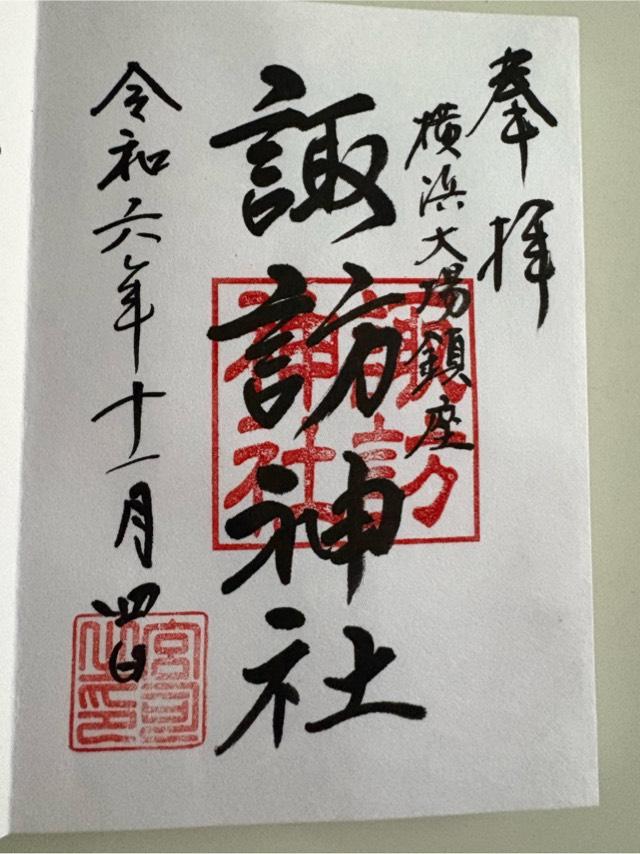 奉拝
横浜大場鎮座
諏訪神社
諏訪神社
令和六年十一月四日
宮司之印